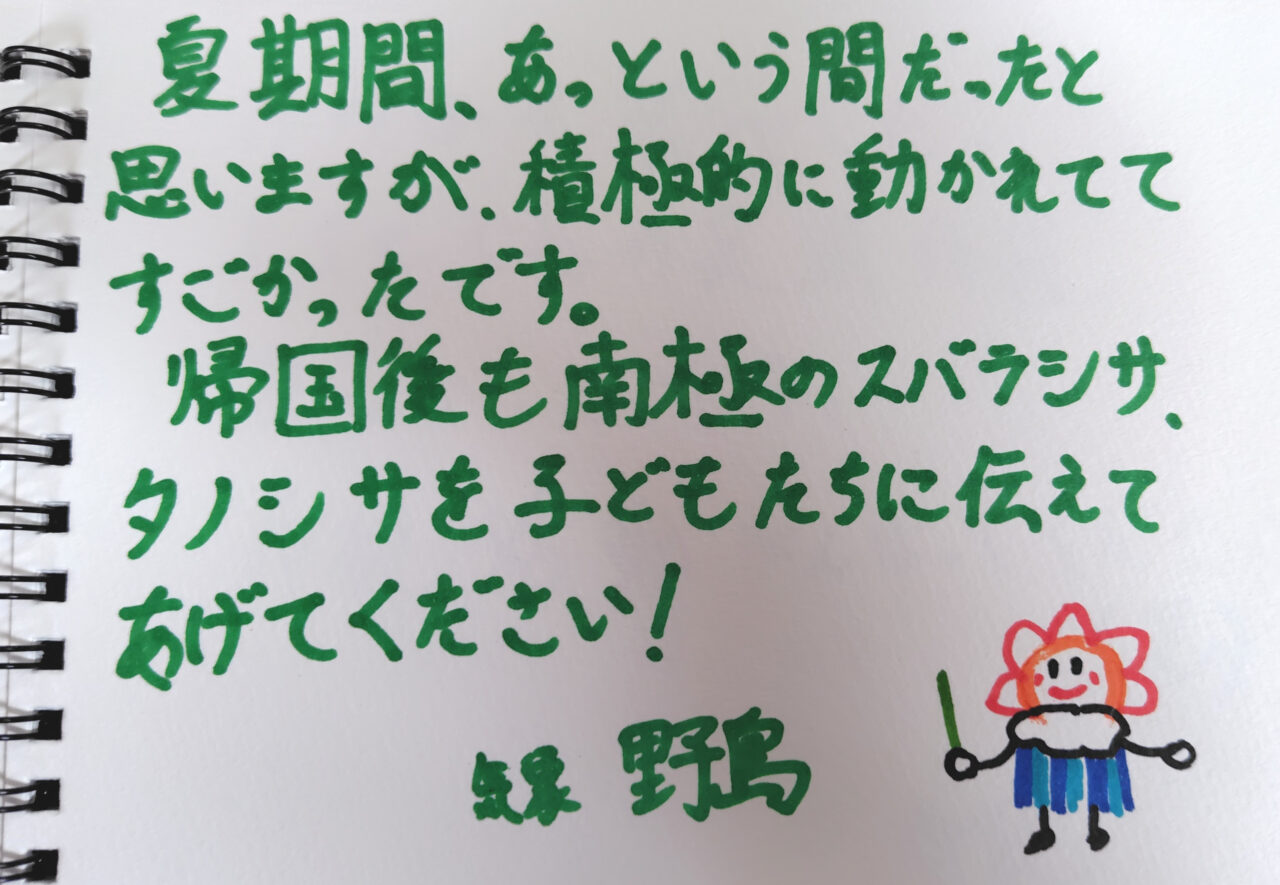 夏期間、あっという間だったと
思いますが、積極的に動かれてて
すごかったです。
帰国後も南極のスバラシサ、
タノシサを子どもたちに伝えて
あげてください!
気象 野島